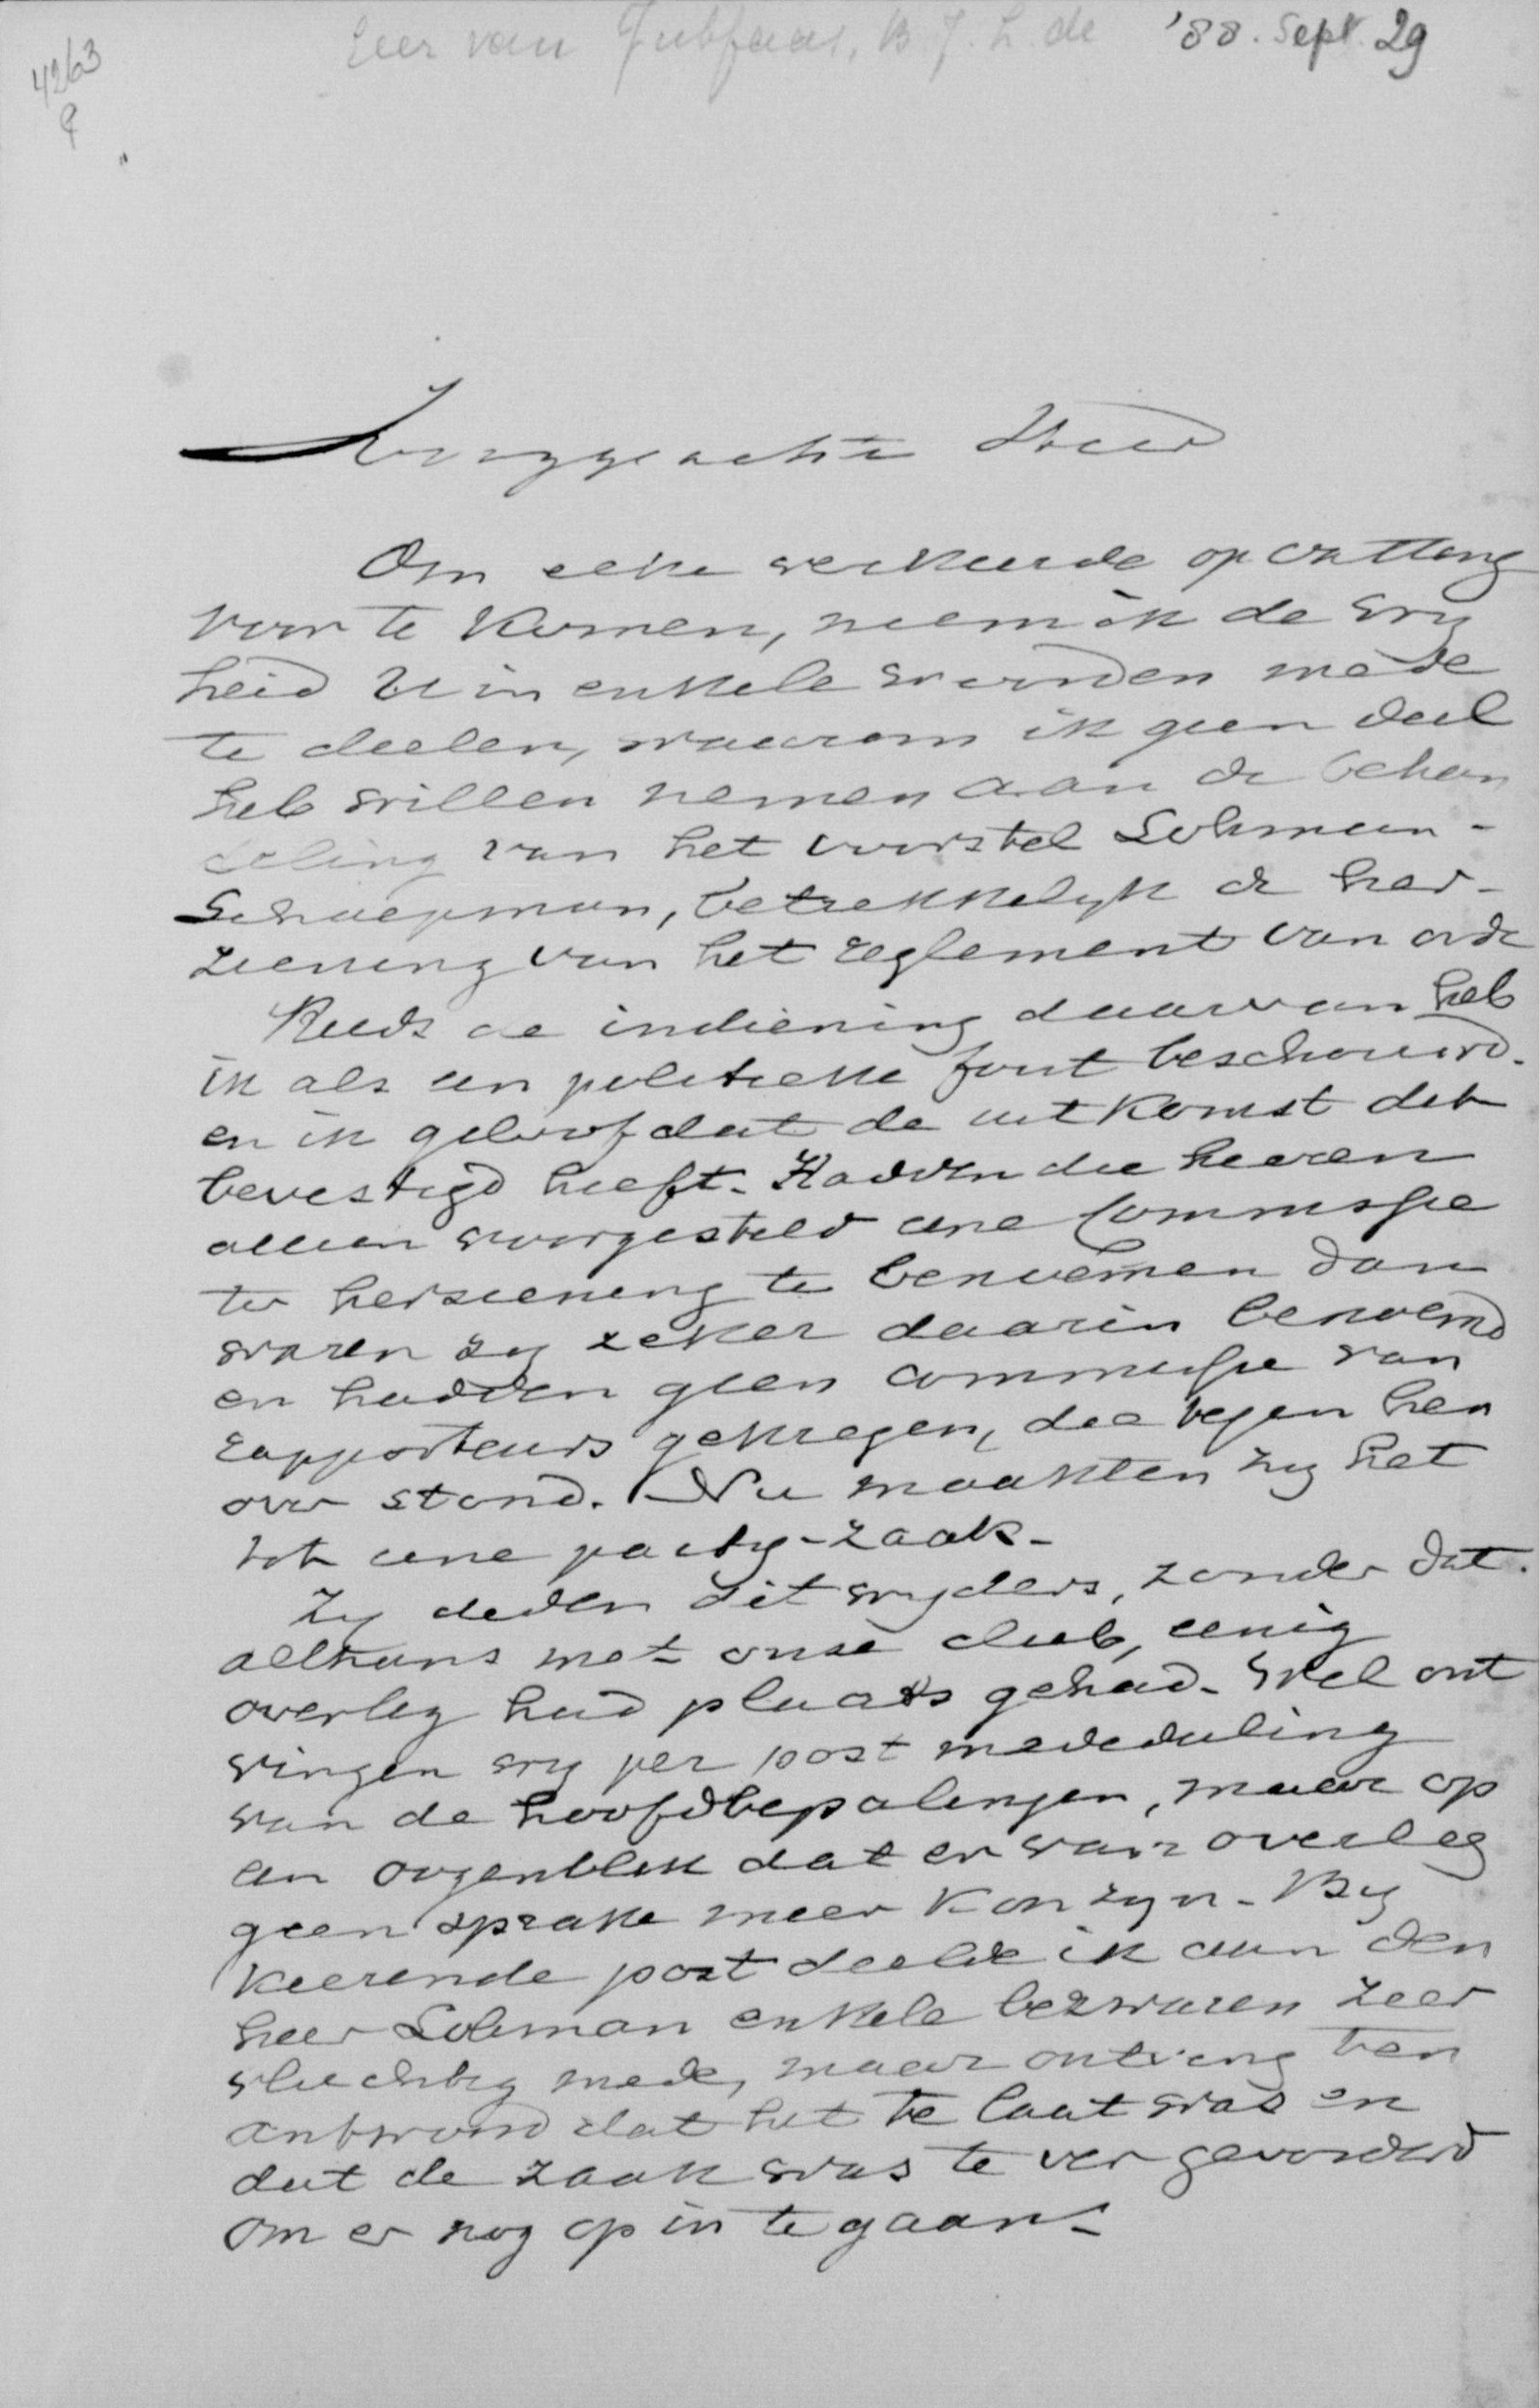 4263
9
Geer van Jutfaas, B.J.L. de '88. Sept. 29
Hooggeachte Heer
Om eene verkeerde opvatting
voor te komen, neem ik de vrij
heid U in enkele woorden mede
te deelen, waarom ik geen deel
heb willen nemen aan de behan
deling van het voorstel Lohman-
Schaepman, betrekkelyk de her-
ziening van het reglement van orde
Reeds de indiening daarvan heb
ik als een politieke fout beschouwd.
en ik geloof dat de uitkomst dit
bevestigd heeft. Hadden die heeren
alleen voorgesteld eene Commissie
ter herziening te benoemen dan
waren zy zeker daarin benoemd
en hadden geen commissie van
rapporteurs gekregen, die tegen hen
over stond. Nu maakten zy het
tot eene party-zaak-
Zy deden dit wyders, zonder dat.
althans met onze club, eenig
overleg had plaats gehad. Wel ont
vingen wy per post mededeeling
van de hoofdbepalingen, maar op
een oogenblik dat er van overleg
geen sprake meer kon zyn. By
keerende post deelde ik aan den
heer Lohman enkele bezwaren zeer
vluchtig mede, maar ontving ten
antwoord dat het te laat was en
dat de zaak was te ver gevorderd
om er nog op in te gaan.